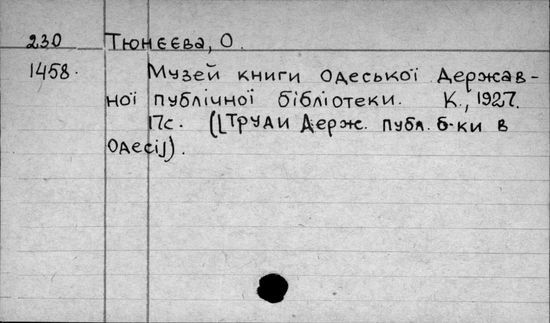 230 Тюнєєва, О.
1458. Музей книги Одеської Держав-
ної публічної бібліотеки. К., 1927.
17с. ([Труди Держ. публ. б-ки в
Одесі]).